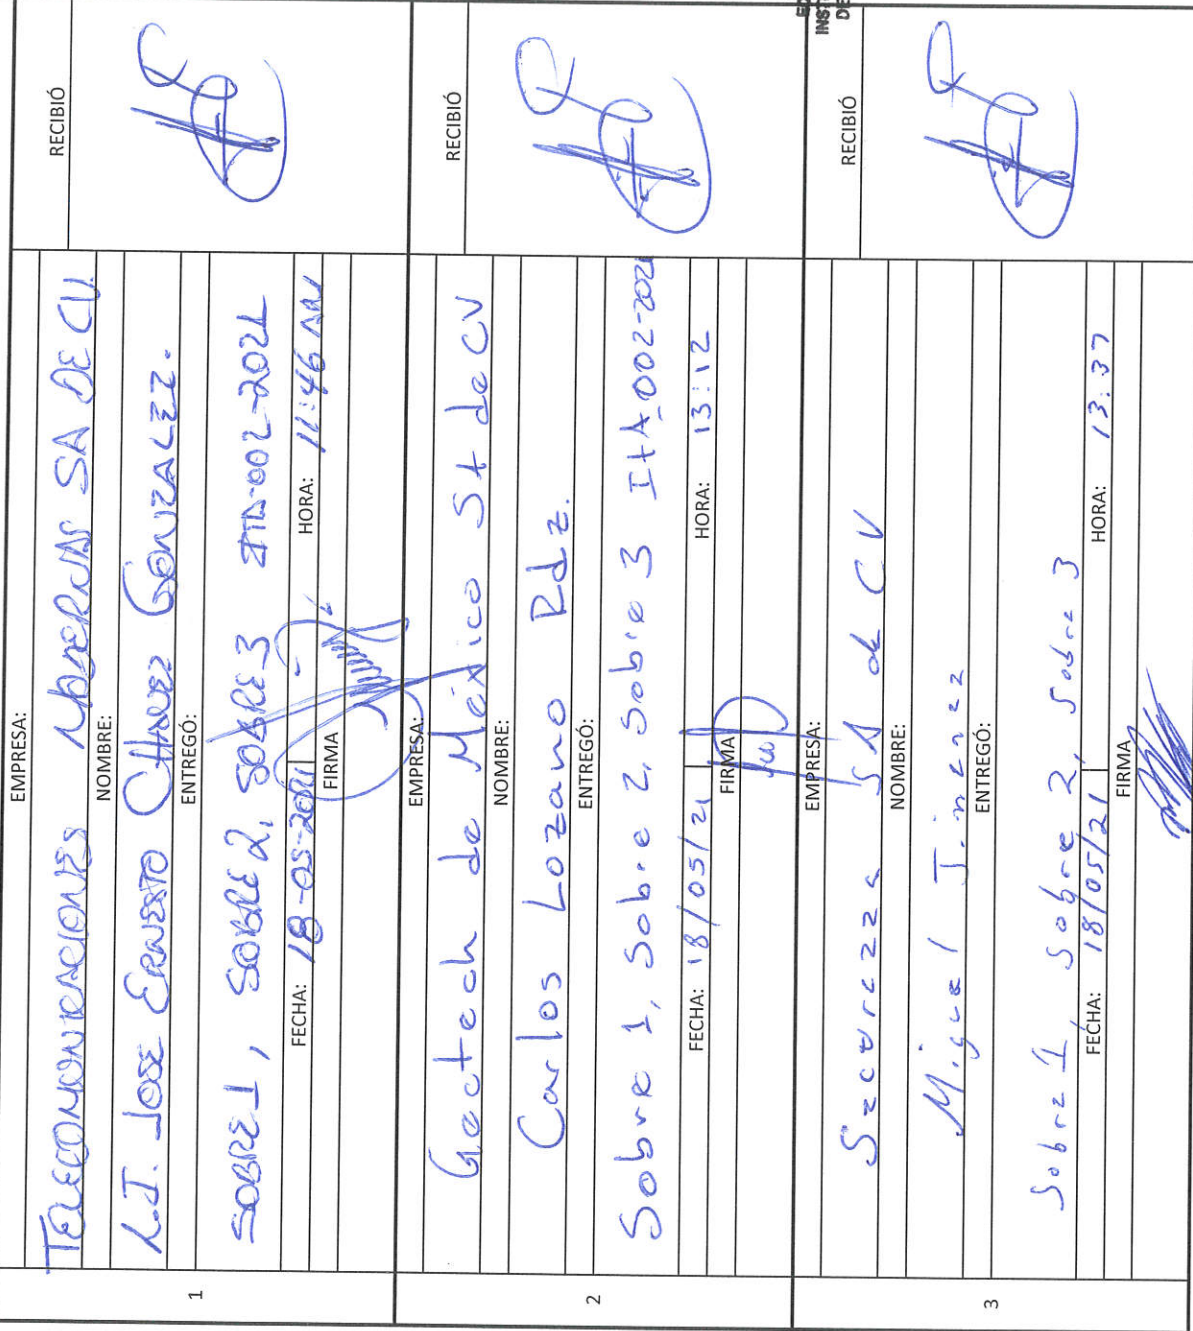 EMPRESA:
TELECOMUNICACIONES MODERNAS SA DE CV.
NOMBRE:
L.I. JOSE ERNESTO CHAVEZ GONZALEZ.
ENTREGÓ:
SOBRE 1, SOBRE 2, SOBRE 3 ITA-002-2021
FECHA: 18-05-2021 HORA: 11:46 AM
FIRMA
RECIBIÓ
1
EMPRESA:
de México SA de CV
NOMBRE:
Carlos Lozano Rdz.
ENTREGÓ:
Sobre 1, Sobre 2, Sobre 3 ItA-002-2021
FECHA: 18/05/21 HORA: 13:12
FIRMA
RECIBIÓ
2
EMPRESA:
SA de CV
NOMBRE:
Miguel Jimenez
ENTREGÓ:
Sobre 1, Sobre 2, Sobre 3
FECHA: 18/05/21 HORA: 13:37
FIRMA
RECIBIÓ
3